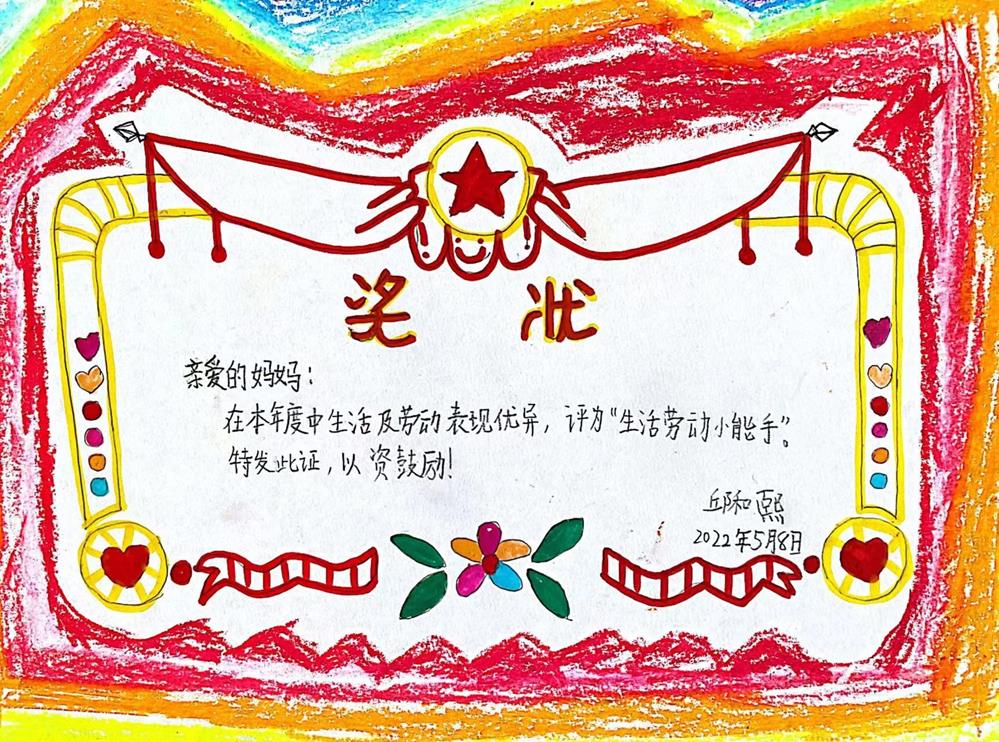 奖状
亲爱的妈妈：
在本年度中生活及劳动表现优异，评为“生活劳动小能手”。
特发此证，以资鼓励！
邱和熙
2022年5月8日